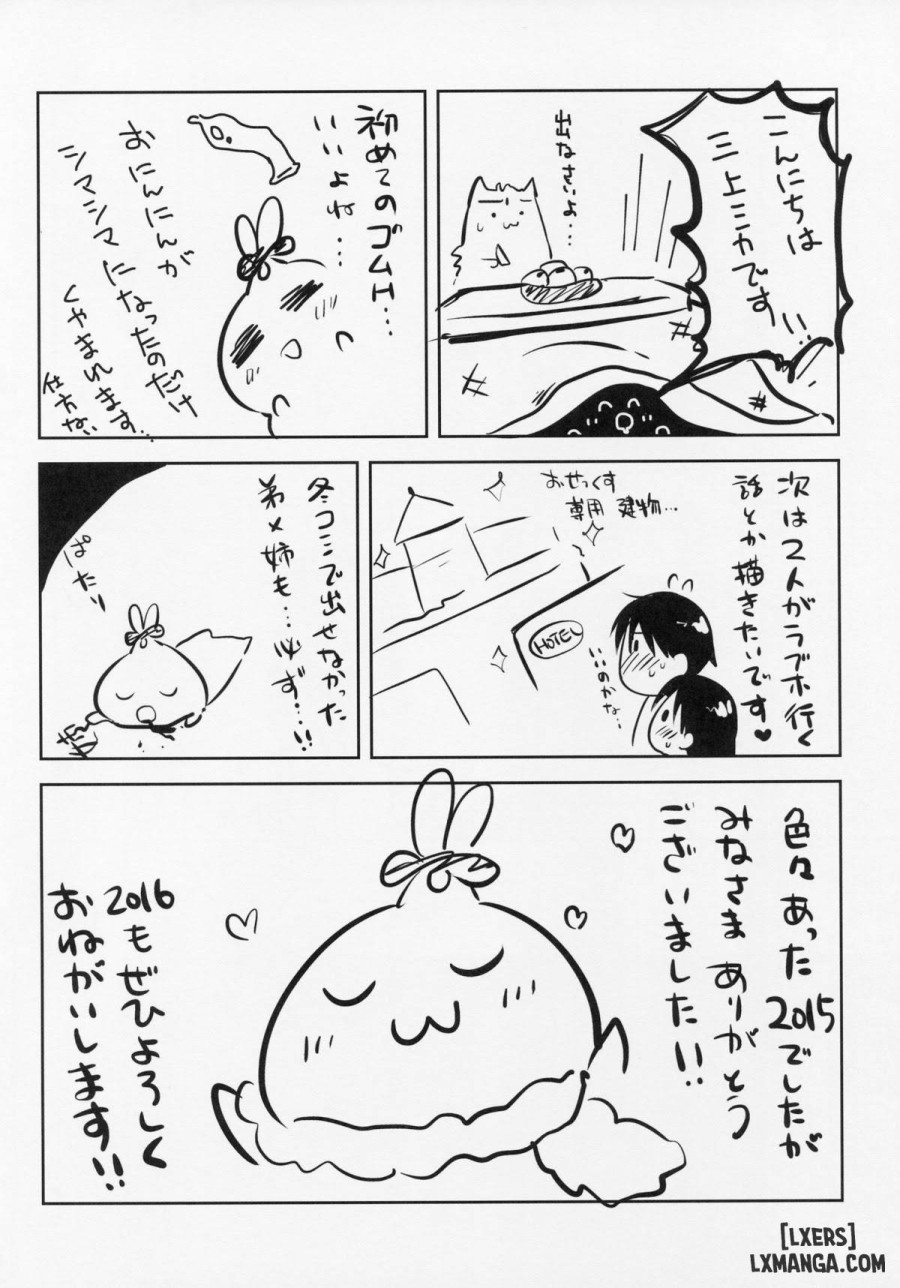 こんにちは
三上ミカです!!
出なさいよ…
初めてのゴムH…
いいよね…
おにんにんが
シマシマになったのだけ
くやまれます…
仕方ない
次は2人がラブホ行く
話とか描きたいです♥
おせっくす
専用建物…
HOTEL
いいのかな…
冬コミで出せなかった
弟×姉も…必ず…!!
ぱたり
色々あった2015でしたが
みなさまありがとう
ございました!!
2016もぜひよろしく
おねがいします!!
[LXERS]
LXMANGA.COM